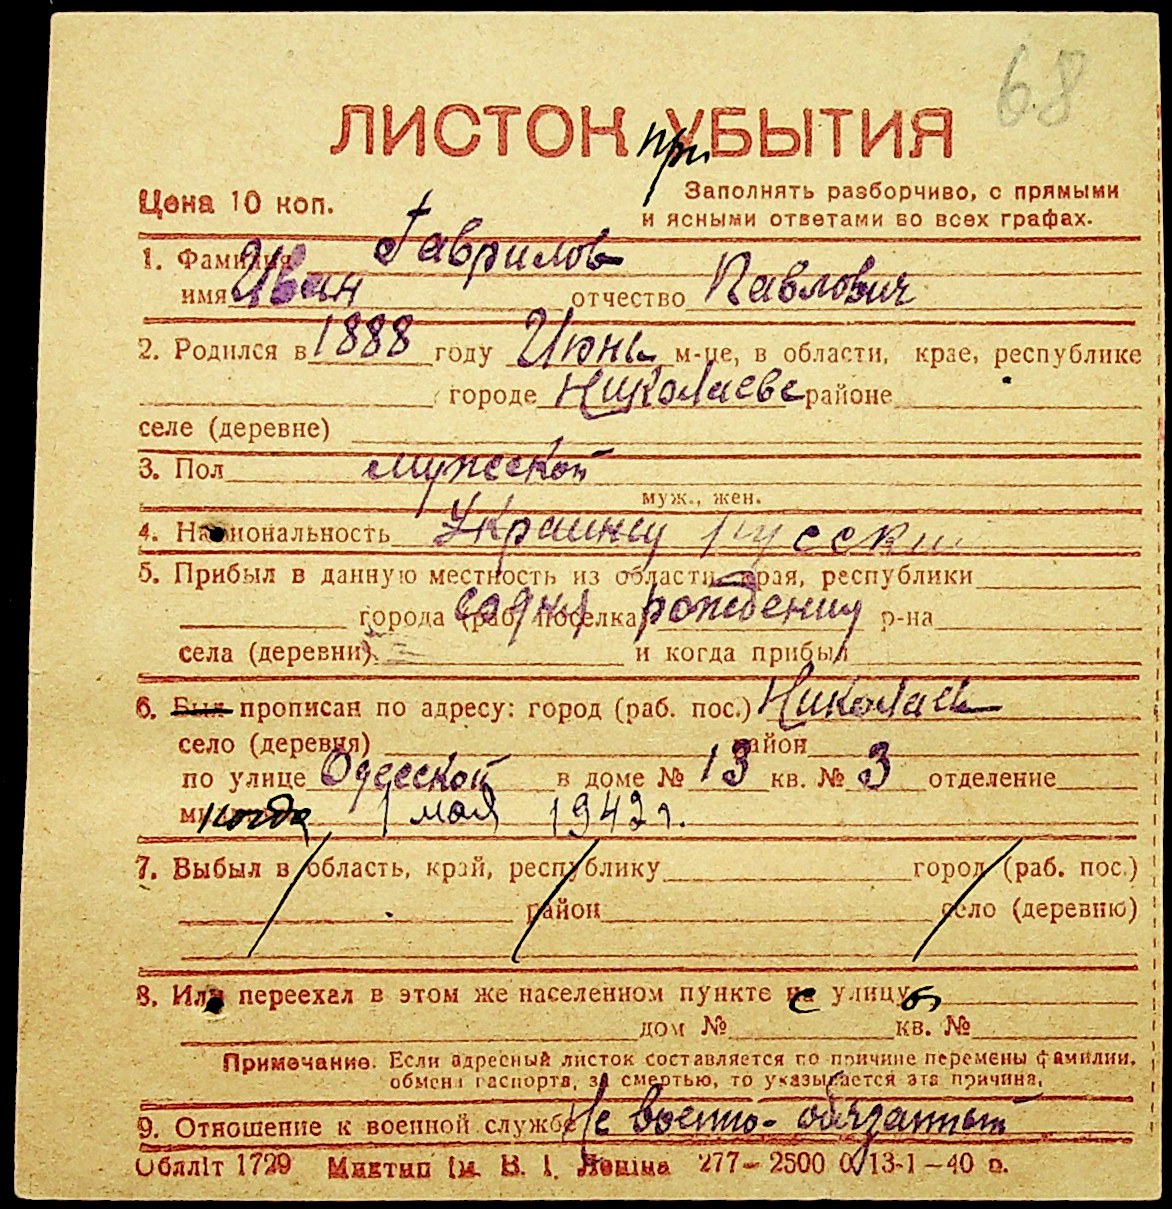 68
ЛИСТОК при УБЫТИЯ
Цена 10 коп. Заполнять разборчиво, с прямыми
и ясными ответами во всех графах.
1. Фамилия Гаврилов
имя Иван отчество Павлович
2. Родился в 1888 году Июнь м-це, в области, крае, республике
городе Николаеве районе
селе (деревне)
3. Пол мужской
муж., жен.
4. Национальность Украинец русский
5. Прибыл в данную местность из области, края, республики
города (раб. поселка) со дня рождения р-на
села (деревни) и когда прибыл
6. Был прописан по адресу: город (раб. пос.) Николаев
село (деревня) район
по улице Одесской в доме № 13 кв. № 3 отделение
когда 1 мая 1942 г.
7. Выбыл в область, край, республику город (раб. пос.)
район село (деревню)
8. Или переехал в этом же населенном пункте с улицы
дом № кв. №
Примечание. Если адресный листок составляется по причине перемены фамилии,
обмена паспорта, за смертью, то указывается эта причина.
9. Отношение к военной службе Не военно-обязанный
Обліт 1729 Миктип ім. В. І. Леніна 277—2500 0 13-1—40 р.